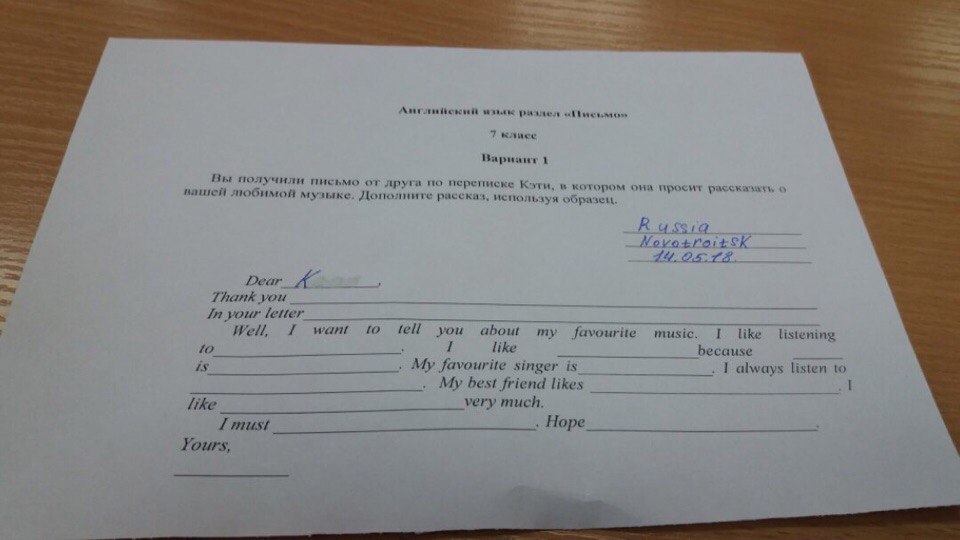 Английский язык раздел «Письмо»
7 класс
Вариант 1
Вы получили письмо от друга по переписке Кэти, в котором она просит рассказать о
вашей любимой музыке. Дополните рассказ, используя образец.
Russia
Novotroitsk
14.05.18
Dear K ,
Thank you
In your letter
Well, I want to tell you about my favourite music. I like listening
to . I like because
is . My favourite singer is . I always listen to
. My best friend likes . I
like very much.
I must . Hope .
Yours,